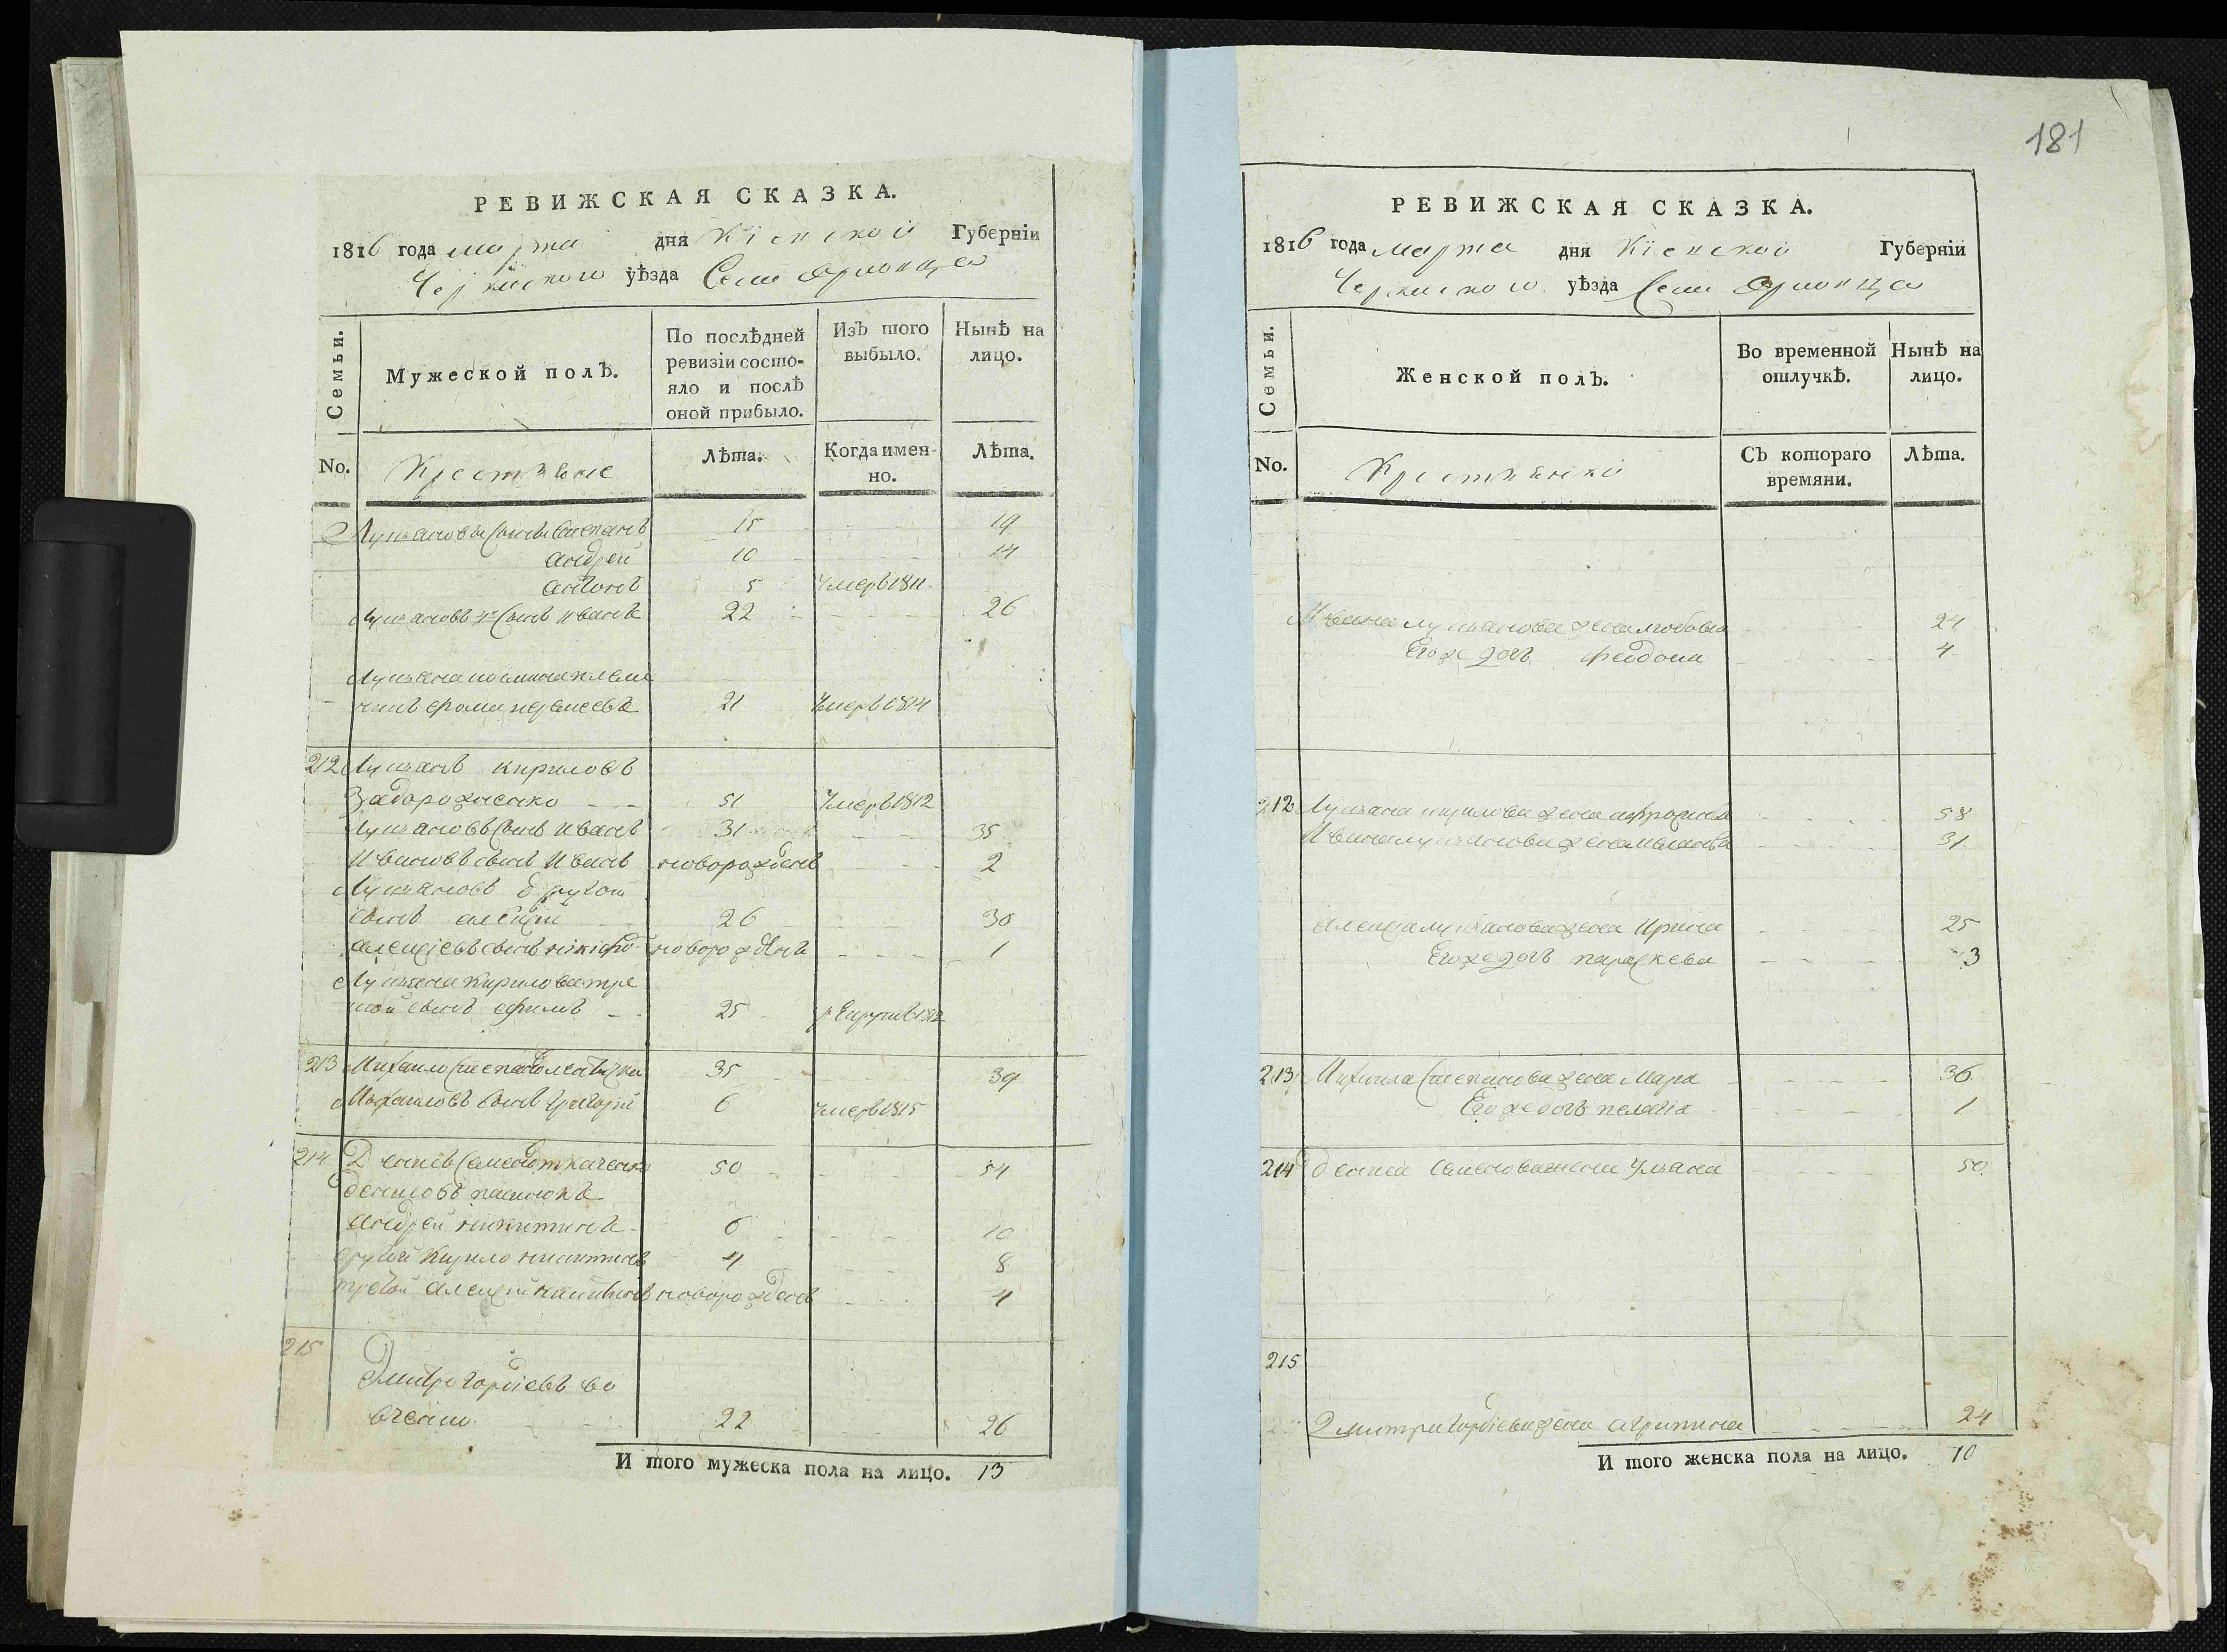 РЕВИЖСКАЯ СКАЗКА.
1816 года марта дня Кіевской Губерніи
Черкаского уѣзда Села
Семьи.
Мужеской полъ.
По послѣдней ревизіи состояло и послѣ оной прибыло.
Изъ того выбыло.
Нынѣ на лицо.
No.
Крестьяне
Лѣта.
Когда именно.
Лѣта.
Лукьяновы Сыны Степанъ 15 19
андрей 10 14
антонъ 5 Умеръ 1811
Лукьяновъ Сынъ иванъ 22 26
Лукьяна племя
21 Умеръ 1814
212 Лукьянъ кириловъ
Задорожненко 51 Умеръ 1812
Лукьяновъ Сынъ иванъ 31 35
Ивановъ сынъ Иванъ новорожденъ 2
Лукьяновъ другой
сынъ алексей 26 30
алексіевъ сынъ новорожденъ 1
Лукьяна Кирилова тре
той сынъ ефимъ 25 рекрутъ 1812
213 Михаило 35 39
Михаиловъ Сынъ григорій 6 умеръ 1815
214 Денисъ Семеновъ ткаченко 50 54
Денисовъ пасинокъ
андрей никитинъ 6 10
другой Кирило никитинъ 4 8
третой алексей никитинъ новорожденъ 4
215
Дмитро гордіевъ во
22 26
И того мужеска пола на лицо. 13
181
РЕВИЖСКАЯ СКАЗКА.
1816 года марта дня Кіевской Губерніи
Черкаского уѣзда Села
Семьи.
Женской полъ.
Во временной отлучкѣ.
Нынѣ на лицо.
No.
Крестьянки
Съ котораго времяни.
Лѣта.
Ивана лукьянова жена 24
Его же дочь феодора 4
212 Лукьяна кирилова жена 58
Ивана лукьянова жена 31
алексея лукьянова жена Ирина 25
Его же дочь параскева 3
213 Михаила Степанова жена Мара 36
Его же дочь пелагіа 1
214 Дениса семенова жена Ульяна 50
215
Дмитра гордіева жена агрипина 24
И того женска пола на лицо. 10